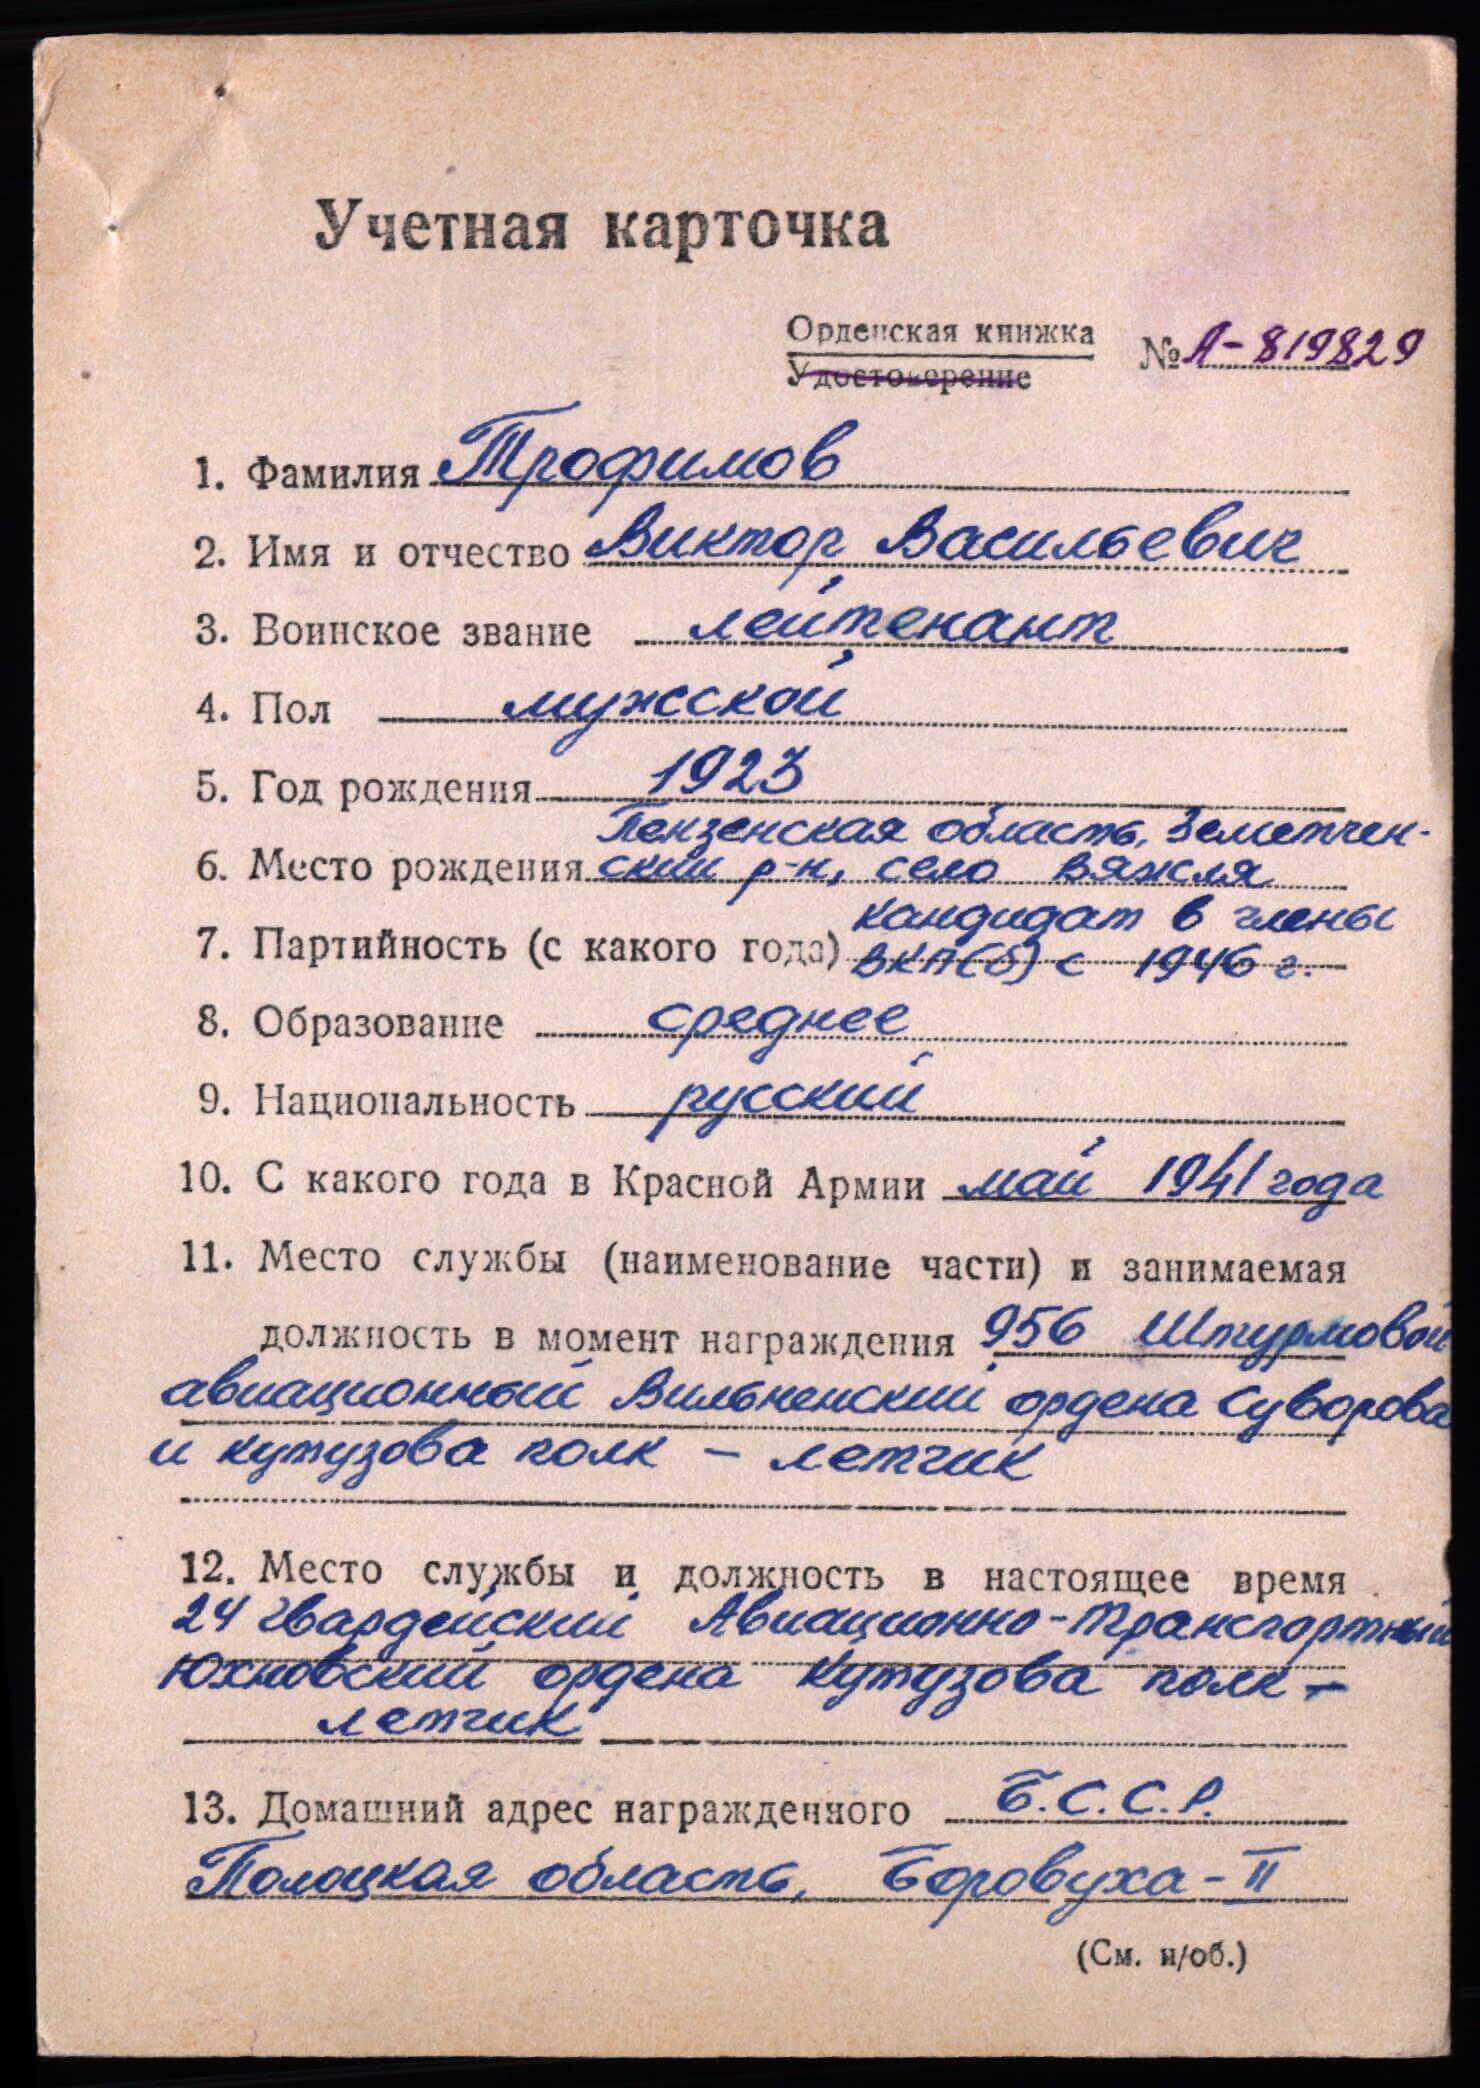 Учетная карточка
Орденская книжка
Удостоверение
№ А-819829
1. Фамилия Трофимов
2. Имя и отчество Виктор Васильевич
3. Воинское звание лейтенант
4. Пол мужской
5. Год рождения 1923
Пензенская область, Земетчен-
6. Место рождения ский р-н, село Вяжля
кандидат в члены
7. Партийность (с какого года) ВКП(б) с 1946 г.
8. Образование среднее
9. Национальность русский
10. С какого года в Красной Армии май 1941 года
11. Место службы (наименование части) и занимаемая
должность в момент награждения 956 Штурмовой
авиационный Вильненский ордена Суворова
и Кутузова полк – летчик
12. Место службы и должность в настоящее время
24 Гвардейский Авиационно-транспортный
Юхновский ордена Кутузова полк –
летчик
13. Домашний адрес награжденного Б.С.С.Р.
Полоцкая область, Боровуха-II
(См. н/об.)